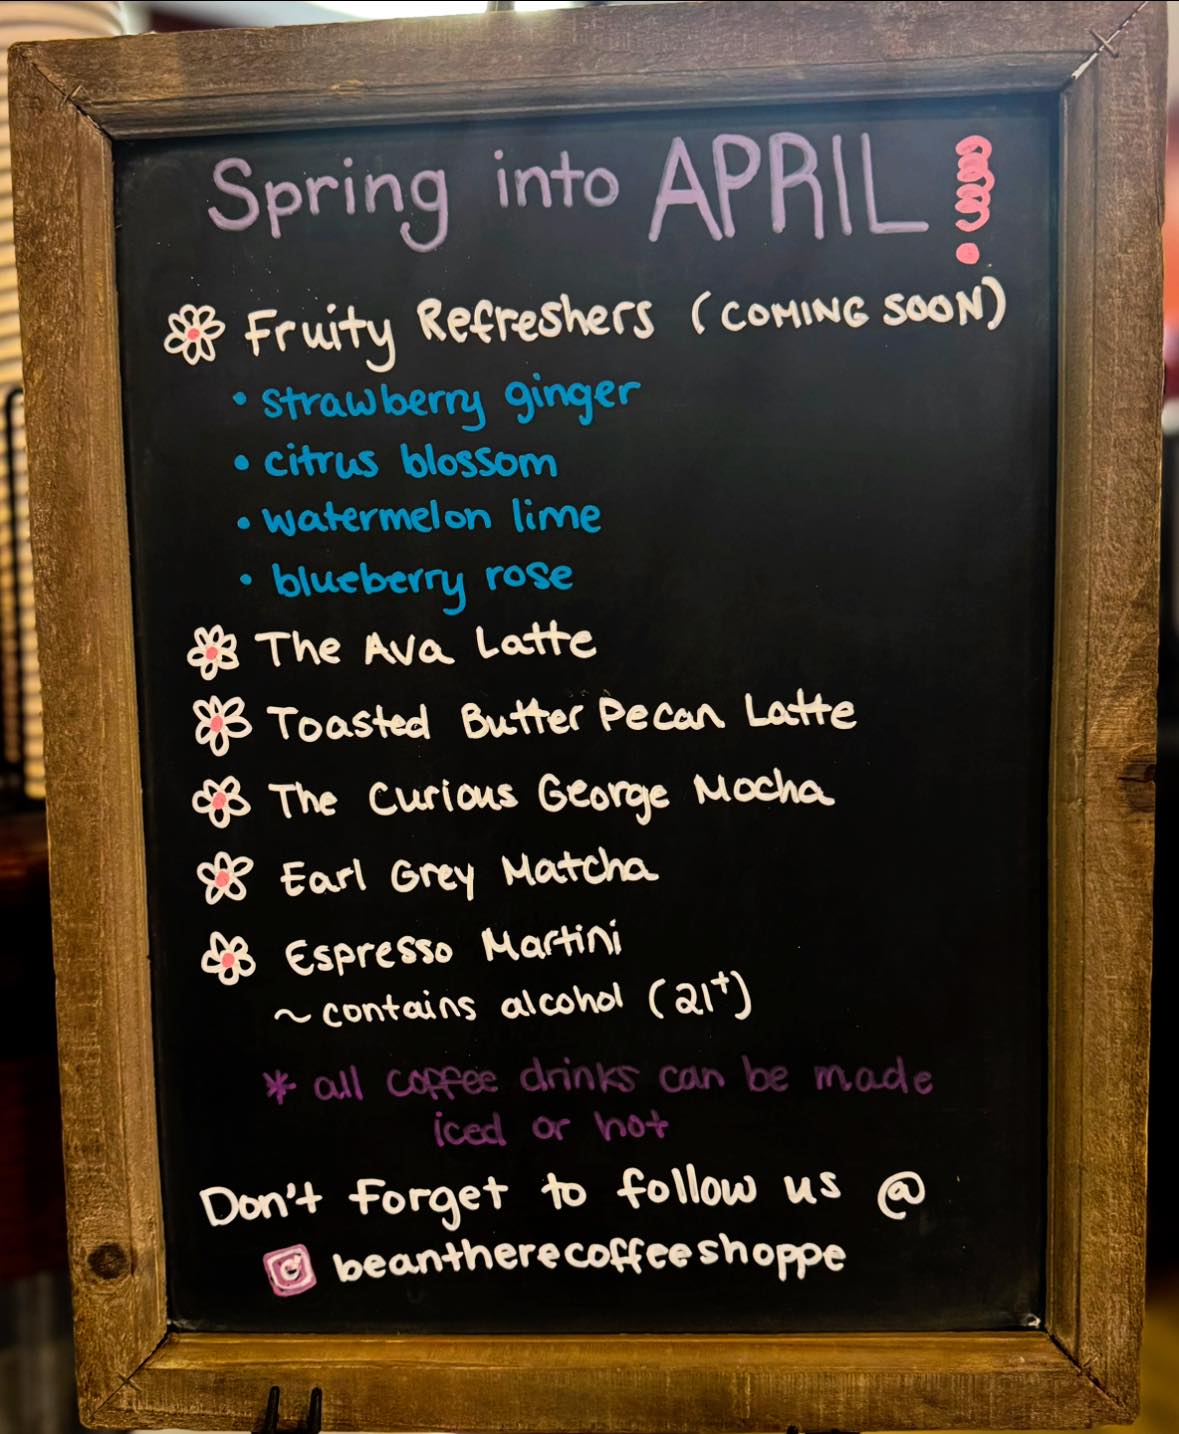 Spring into APRIL!
Fruity Refreshers (COMING SOON)
• strawberry ginger
• citrus blossom
• watermelon lime
• blueberry rose
The Ava Latte
Toasted Butter Pecan Latte
The Curious George Mocha
Earl Grey Matcha
Espresso Martini
~ contains alcohol (21+)
* all coffee drinks can be made
iced or hot
Don't forget to follow us @
beantherecoffeeshoppe